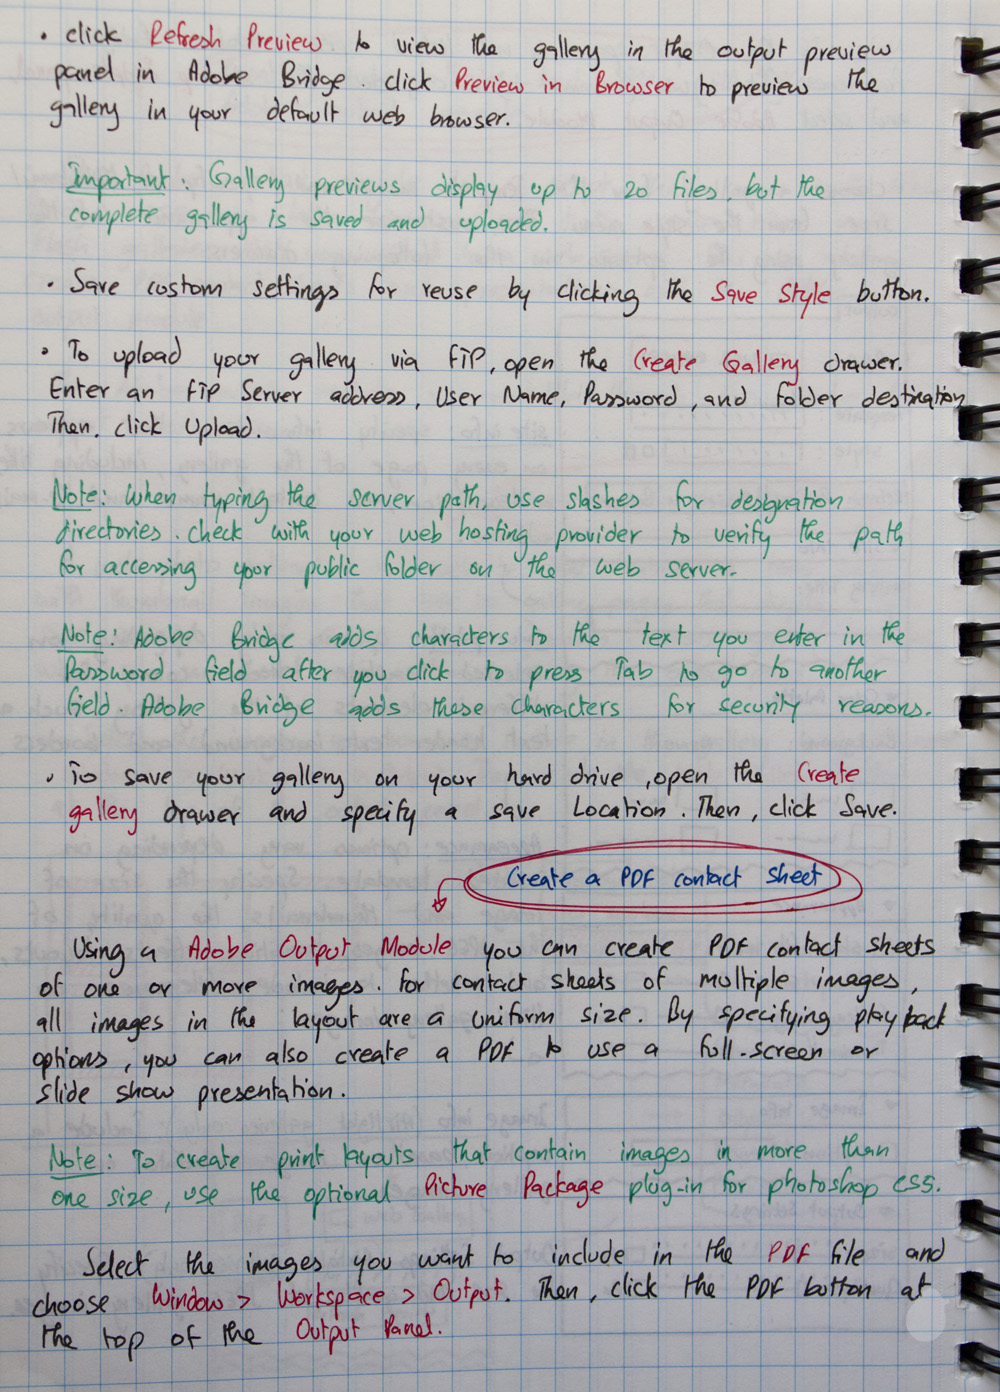 • click Refresh Preview to view the gallery in the output preview
panel in Adobe Bridge. click Preview in Browser to preview the
gallery in your default web browser.
Important: Gallery previews display up to 20 files, but the
complete gallery is saved and uploaded.
• Save custom settings for reuse by clicking the Save Style button.
• To upload your gallery via FTP, open the Create Gallery drawer.
Enter an FTP Server address, User Name, Password, and folder destination
Then, click Upload.
Note: When typing the server path, use slashes for designation
directories. check with your web hosting provider to verify the path
for accessing your public folder on the web server.
Note: Adobe Bridge adds characters to the text you enter in the
Password field after you click to press Tab to go to another
field. Adobe Bridge adds these characters for security reasons.
• To save your gallery on your hard drive, open the Create
gallery drawer and specify a save Location. Then, click Save.
Create a PDF contact sheet
Using a Adobe Output Module you can create PDF contact sheets
of one or more images. For contact sheets of multiple images,
all images in the layout are a uniform size. By specifying playback
options, you can also create a PDF to use a full-screen or
slide show presentation.
Note: To create print layouts that contain images in more than
one size, use the optional Picture Package plug-in for photoshop CS5.
Select the images you want to include in the PDF file and
choose Window > Workspace > Output. Then, click the PDF button at
the top of the Output Panel.